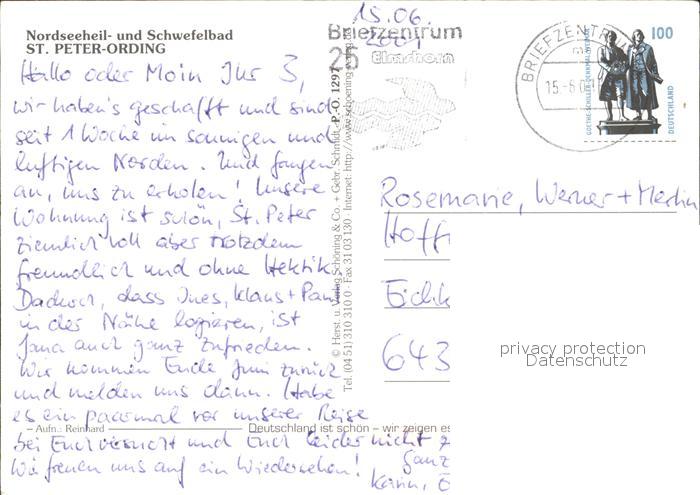 Nordseeheil- und Schwefelbad
ST. PETER-ORDING
15.06.
2001
Briefzentrum
25
Elmshorn
BRIEFZENTRUM
15.-6.01
100
DEUTSCHLAND
GOETHE-SCHILLER-DENKMAL WEIMAR
Hallo oder Moin Ihr 3,
wir haben's geschafft und sind
seit 1 Woche im sonnigen und
luftigen Norden. Und fangen
an, uns zu erholen! Unsere
Wohnung ist schön, St. Peter
ziemlich voll aber trotzdem
freundlich und ohne Hektik.
Dadurch, dass Ines, Klaus + Pan
in der Nähe logieren, ist
Jana auch ganz zufrieden.
Wir kommen Ende Juni zurück
und melden uns dann. Habe
es ein paarmal vor unserer Reise
bei Euch versucht und Euch leider nicht
Wir freuen uns auf ein Wiedersehen!
Ganz
Karin,
© Herst. u. Verlag Schöning & Co. + Gebr. Schmidt · P.O. 1297
Tel. (04 51) 310 310 0 · Fax 31 03 130 · Internet: http://www.schoening-verlag.de
Rosemarie, Werner + Merlin
Hoff
Eich
643
privacy protection
Datenschutz
– Aufn.: Reinhard
Deutschland ist schön – wir zeigen es